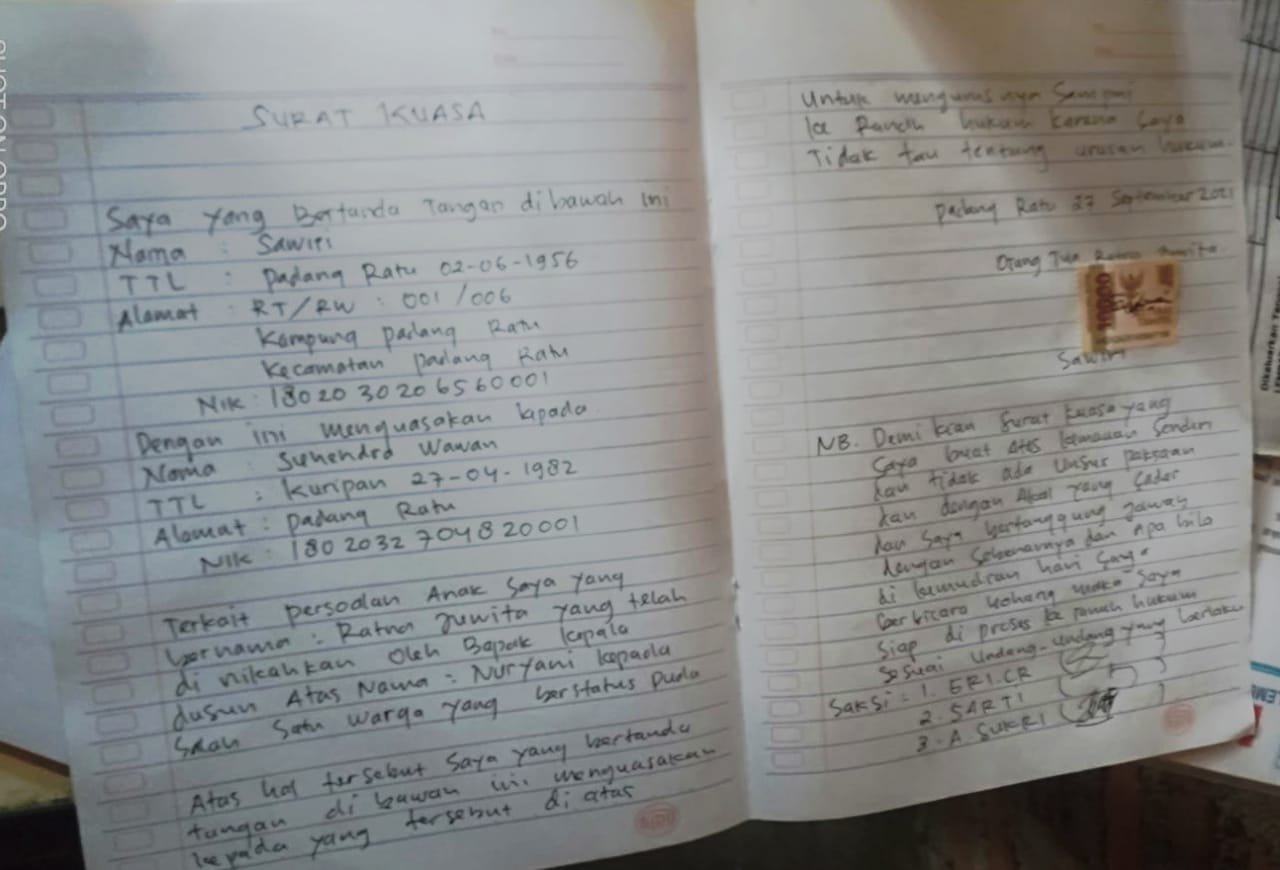 SURAT KUASA
Saya yang Bertanda Tangan dibawah ini
Nama : Sawiri
TTL : Padang Ratu 02-06-1956
Alamat : RT/RW : 001/006
Kampung Padang Ratu
Kecamatan Padang Ratu
Nik : 1802030206560001
Dengan ini menguasakan kepada
Nama : Suhendro Wawan
TTL : Kuripan 27-04-1982
Alamat : Padang Ratu
Nik : 1802032704820001
Terkait Persoalan Anak Saya yang
bernama : Ratna Juwita yang telah
di nikahkan Oleh Bapak kepala
dusun Atas Nama : Nuryani kepada
Salah Satu warga yang berstatus Duda
Atas hal tersebut Saya yang bertanda
tangan di bawah ini menguasakan
kepada yang tersebut di atas
Untuk mengurusnya Sampai
ke Ranah hukum karena Saya
Tidak tau tentang urusan hukum.
Padang Ratu 27 September 2021
Orang Tua Ratna Juwita
10000
Sawiri
NB. Demikian Surat kuasa yang
Saya buat Atas kemauan Sendiri
dan tidak ada Unsur paksaan
dan dengan Akal yang Sadar
dan Saya bertanggung jawab
dengan Sebenarnya dan Apa bila
di kemudian hari Saya
berbicara bohong maka Saya
Siap di proses ke ranah hukum
Sesuai Undang-undang yang berlaku
Saksi : 1. ERI.CR
2. SARTI
3. A. SUKRI
SHOT ON OPPO